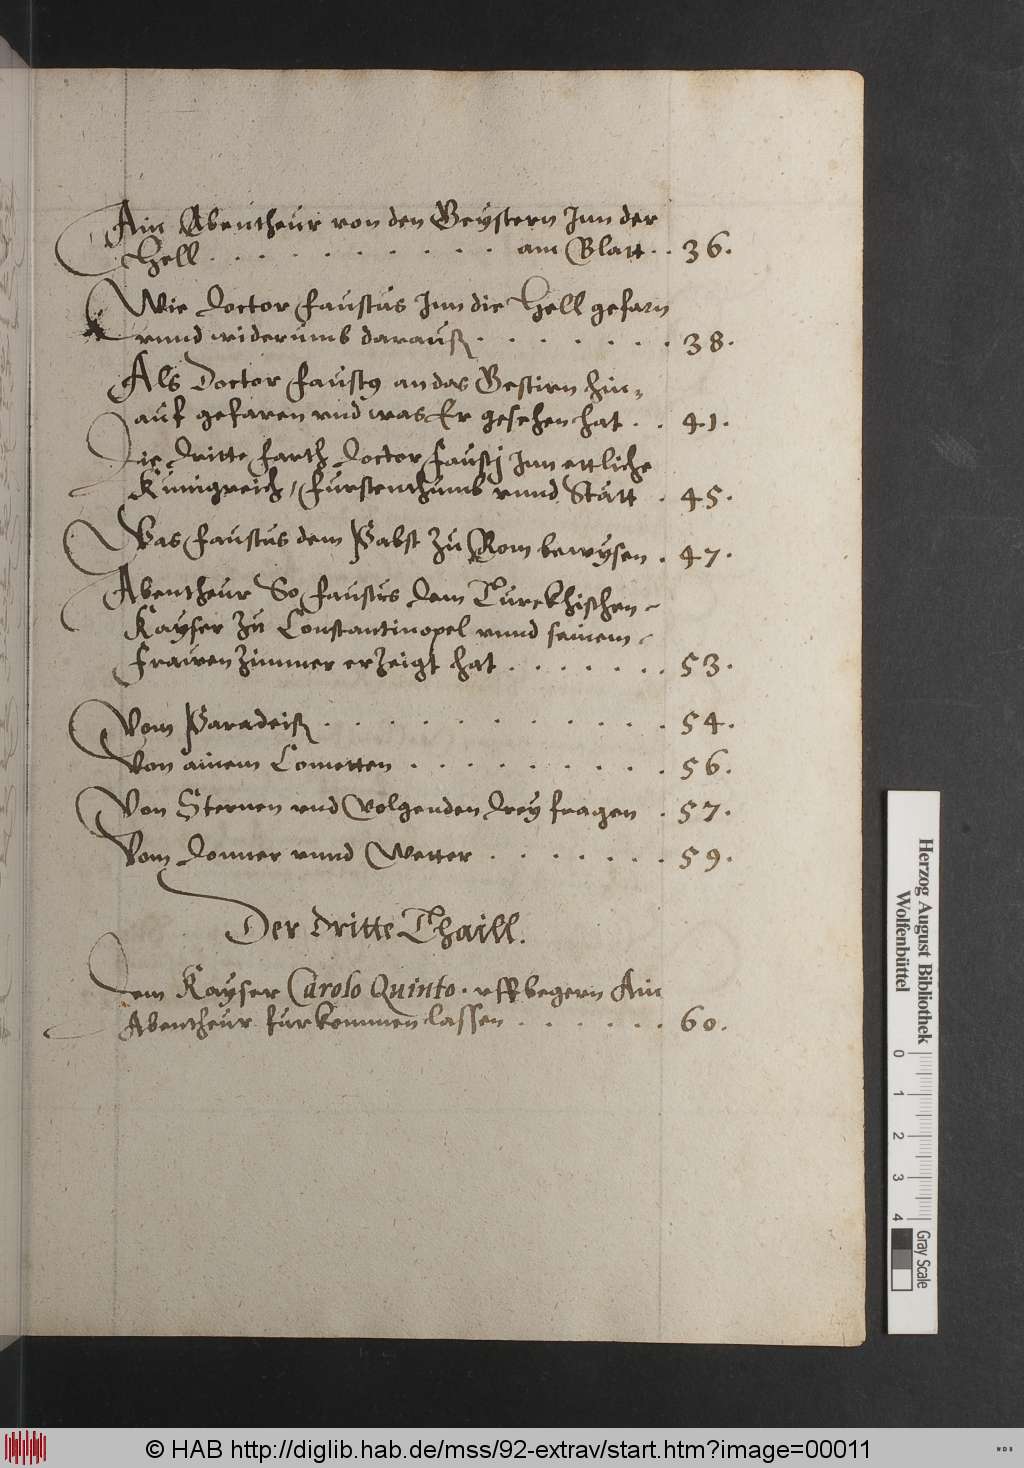 Ain Abentheur von den Geystern Inn der
Hell . . . . . . . . . . am Blatt . . 36.
Wie doctor Faustus Inn die Hell gefarn
vnnd widerumb darauß . . . . . . . 38.
Als Doctor Faustus an das Gestirn hin=
auf gefaren vnd was Er gesehen hat . . 41.
Die dritte farth doctor Faustj Inn ettliche
Künigreich / Fürstenthumb vnnd Stätt . 45.
Was Faustus dem Pabst zu Rom bewysen . 47.
Abentheur So Faustus dem Turckhischen
Kayser zu Constantinopel vnnd seinem
Frawenzimmer erzeigt hat . . . . . . . 53.
Vom Paradeiß . . . . . . . . . . . 54.
Von ainem Cometten . . . . . . . . . 56.
Von Sternen vnd volgenden drey fragen . 57.
Vom donner vnnd Wetter . . . . . . . 59.
Der dritte Thaill.
dem Kayser Carolo Quinto . vff begern Ain
Abentheur furkommen lassen . . . . . . 60.
Herzog August Bibliothek
Wolfenbüttel
0 1 2 3 4
Gray Scale
© HAB http://diglib.hab.de/mss/92-extrav/start.htm?image=00011